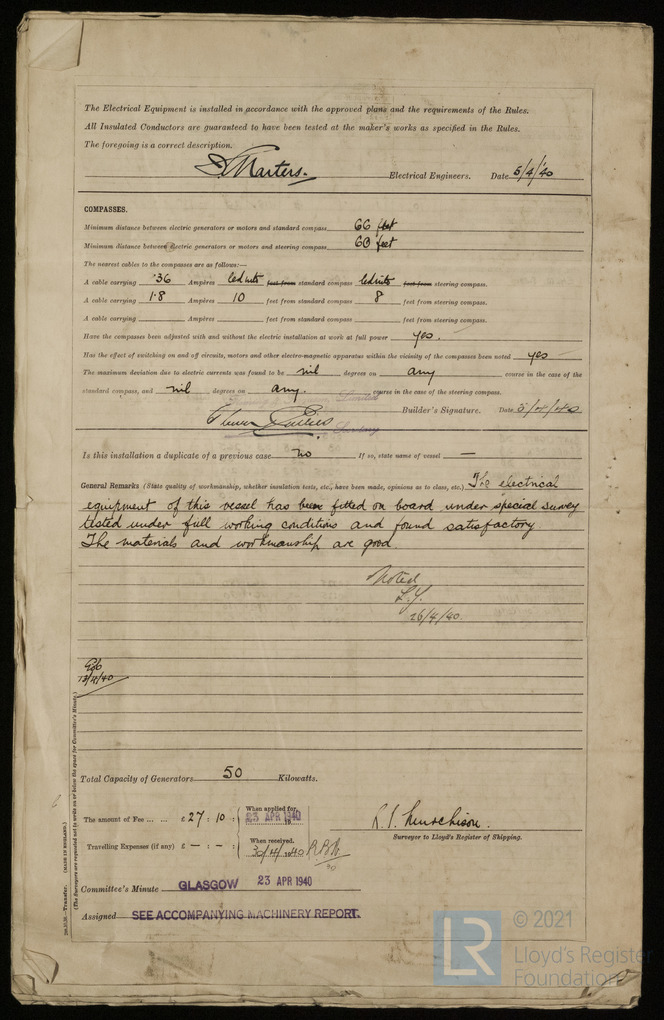 The Electrical Equipment is installed in accordance with the approved plans and the requirements of the Rules.
All Insulated Conductors are guaranteed to have been tested at the maker's works as specified in the Rules.
The foregoing is a correct description.
Electrical Engineers. Date 5/4/40
COMPASSES.
Minimum distance between electric generators or motors and standard compass 66 feet
Minimum distance between electric generators or motors and steering compass 60 feet
The nearest cables to the compasses are as follows:—
A cable carrying .36 Ampères led into feet from standard compass led into feet from steering compass.
A cable carrying 1.8 Ampères 10 feet from standard compass 8 feet from steering compass.
A cable carrying Ampères feet from standard compass feet from steering compass.
Have the compasses been adjusted with and without the electric installation at work at full power yes.
Has the effect of switching on and off circuits, motors and other electro-magnetic apparatus within the vicinity of the compasses been noted yes
The maximum deviation due to electric currents was found to be nil degrees on any course in the case of the
standard compass, and nil degrees on any. course in the case of the steering compass.
Builder's Signature. Date 5/4/40
Is this installation a duplicate of a previous case no If so, state name of vessel —
General Remarks (State quality of workmanship, whether insulation tests, etc., have been made, opinions as to class, etc.) The electrical
equipment of this vessel has been fitted on board under special survey
tested under full working conditions and found satisfactory.
The materials and workmanship are good.
Noted
26/4/40
Total Capacity of Generators 50 Kilowatts.
The amount of Fee ... ... £ 27 : 10 : When applied for, 23 APR 1940
Travelling Expenses (if any) £ — : — : When received, 30/4/1940
Surveyor to Lloyd's Register of Shipping.
Committee's Minute GLASGOW 23 APR 1940
Assigned SEE ACCOMPANYING MACHINERY REPORT.
(MADE IN ENGLAND.)
(The Surveyors are requested not to write on or below the space for Committee's Minute.)
LR
© 2021
Lloyd's Register
Foundation